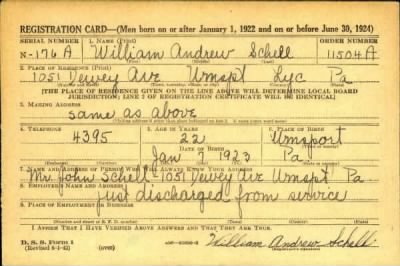 REGISTRATION CARD—(Men born on or after January 1, 1922 and on or before June 30, 1924)
SERIAL NUMBER 1. NAME (Print) ORDER NUMBER
N-176A William Andrew Schell 11504A
(First) (Middle) (Last)
2. PLACE OF RESIDENCE (Print)
1051 Dewey Ave Wmspt Lyc Pa
[THE PLACE OF RESIDENCE GIVEN ON THE LINE ABOVE WILL DETERMINE LOCAL BOARD
JURISDICTION; LINE 2 OF REGISTRATION CERTIFICATE WILL BE IDENTICAL]
3. MAILING ADDRESS
same as above
4. TELEPHONE 5. AGE IN YEARS 6. PLACE OF BIRTH
4395 22 Wmsport
DATE OF BIRTH
Jan 7 1923 Pa
7. NAME AND ADDRESS OF PERSON WHO WILL ALWAYS KNOW YOUR ADDRESS
Mr. John Schell-1051 Dewey Ave Wmspt Pa
8. EMPLOYER'S NAME AND ADDRESS
just discharged from service
I AFFIRM THAT I HAVE VERIFIED ABOVE ANSWERS AND THAT THEY ARE TRUE.
D. S. S. Form 1
(over)
William Andrew Schell